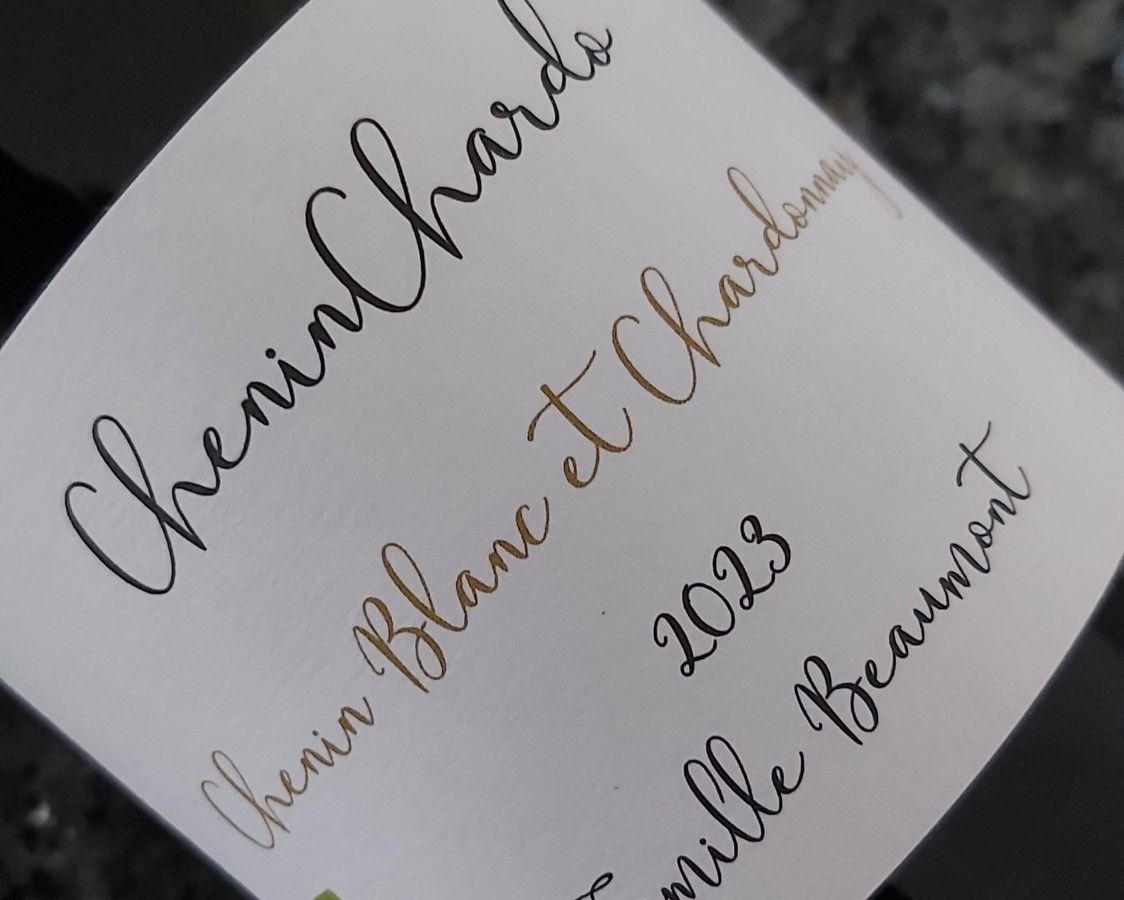 CheninChardo
Chenin Blanc et Chardonnay
2023
Famille Beaumont